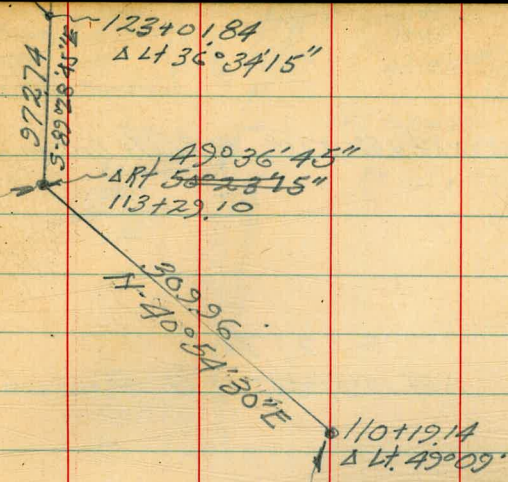 123+01.84
Δ Lt 36°34'15"
972.74
S-89°28'45"E
49°36'45"
Δ Rt 50°23'15"
113+29.10
309.96
N-40°54'30"E
110+19.14
Δ Lt. 49°09'